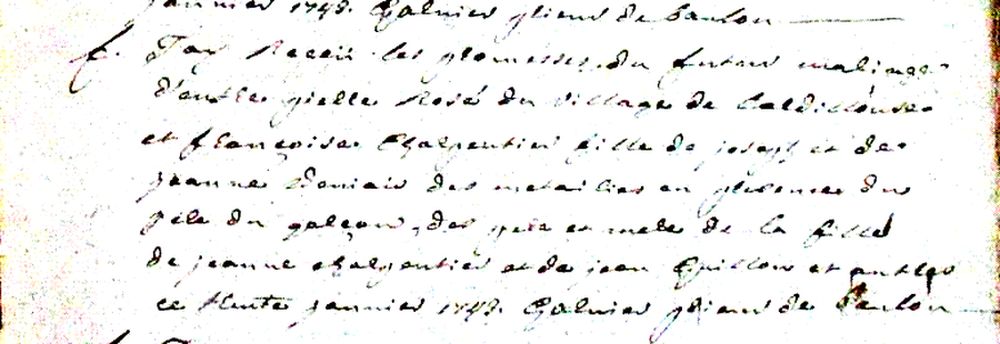 janvier 1748. Galnier prieur de Saulon
f. J'ay Receü les promesses du futur mariage
d'entre pierre Rosé du village de
et françoise Charpentier fille de joseph et de
jeanne des metairies en presence du
pere du garçon, des pere et mere de la fille
de jeanne charpentier et de jean et autres
ce trente janvier 1748. Galnier prieur de Saulon